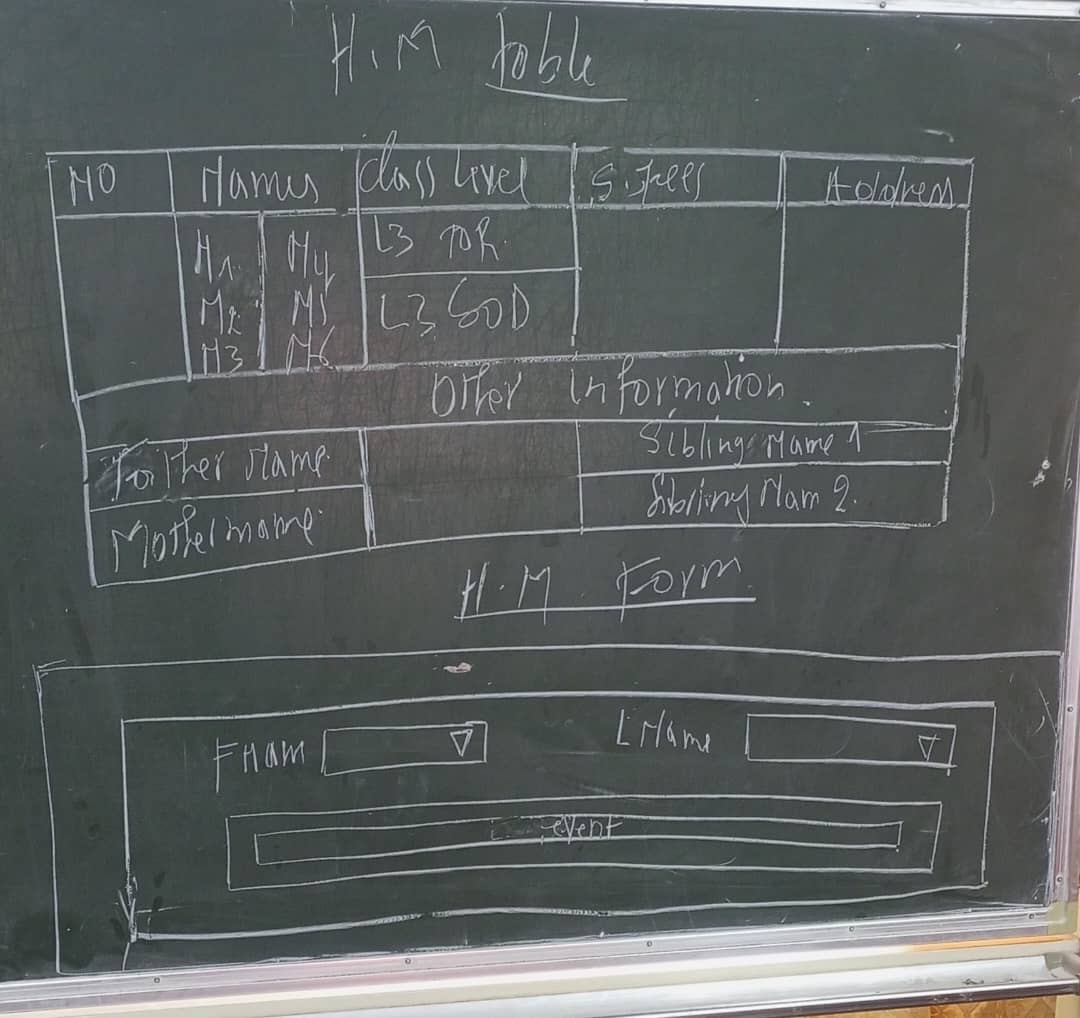 H.M table
NO Names Class Level S.Fees Address
N1 N4 L3 TOR
N2 N5 L3 SOD
N3 N6
Other Information.
Father Name
Sibling Name 1
Mother name
Sibling Nam 2.
H.M Form
FNam LName
event